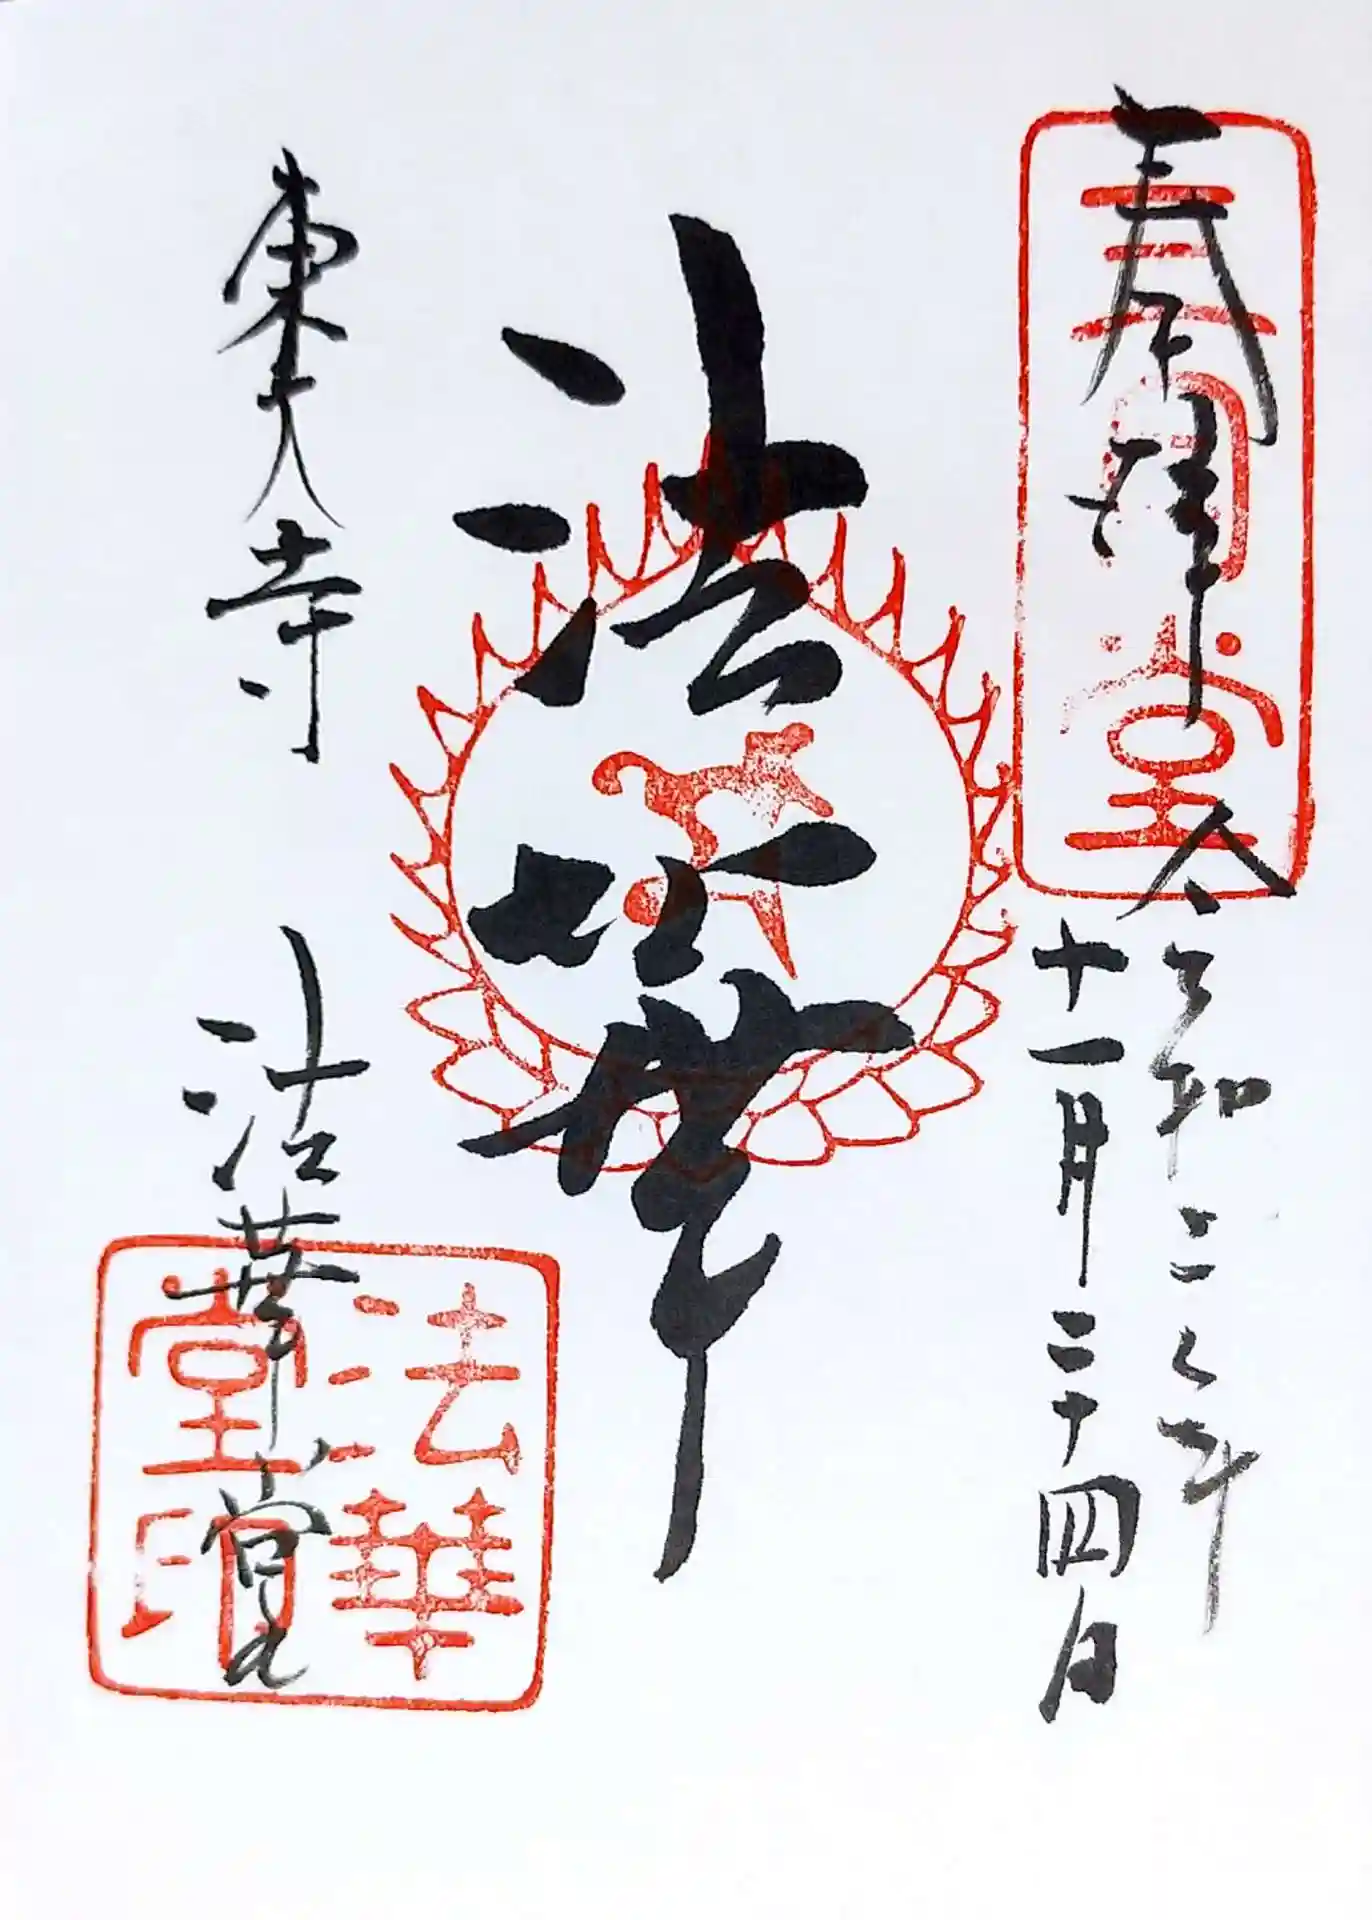 三月堂
奉拝
令和二年
十一月二十四日
法華
東大寺
法華堂
法華堂印